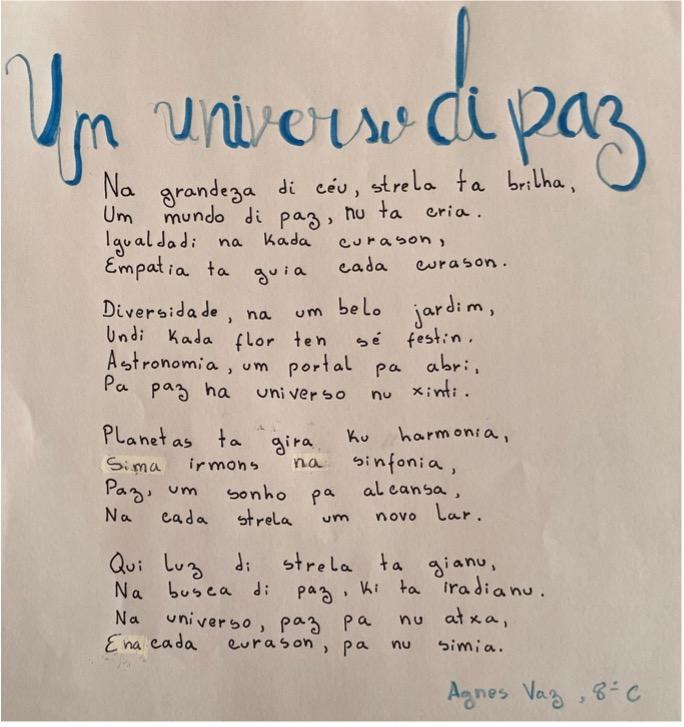 Um universo di paz
Na grandeza di céu, strela ta brilha,
Um mundo di paz, nu ta cria.
Igualdadi na Kada curason,
Empatia ta guia cada curason.
Diversidade, na um belo jardim,
Undi Kada flor ten sé festin.
Astronomia, um portal pa abri,
Pa paz na universo nu xinti.
Planetas ta gira ku harmonia,
Sima irmons na sinfonia,
Paz, um sonho pa alcansa,
Na cada strela um novo lar.
Qui luz di strela ta gianu,
Na busca di paz, ki ta iradianu.
Na universo, paz pa nu atxa,
E na cada curason, pa nu simia.
Agnes Vaz, 8º C